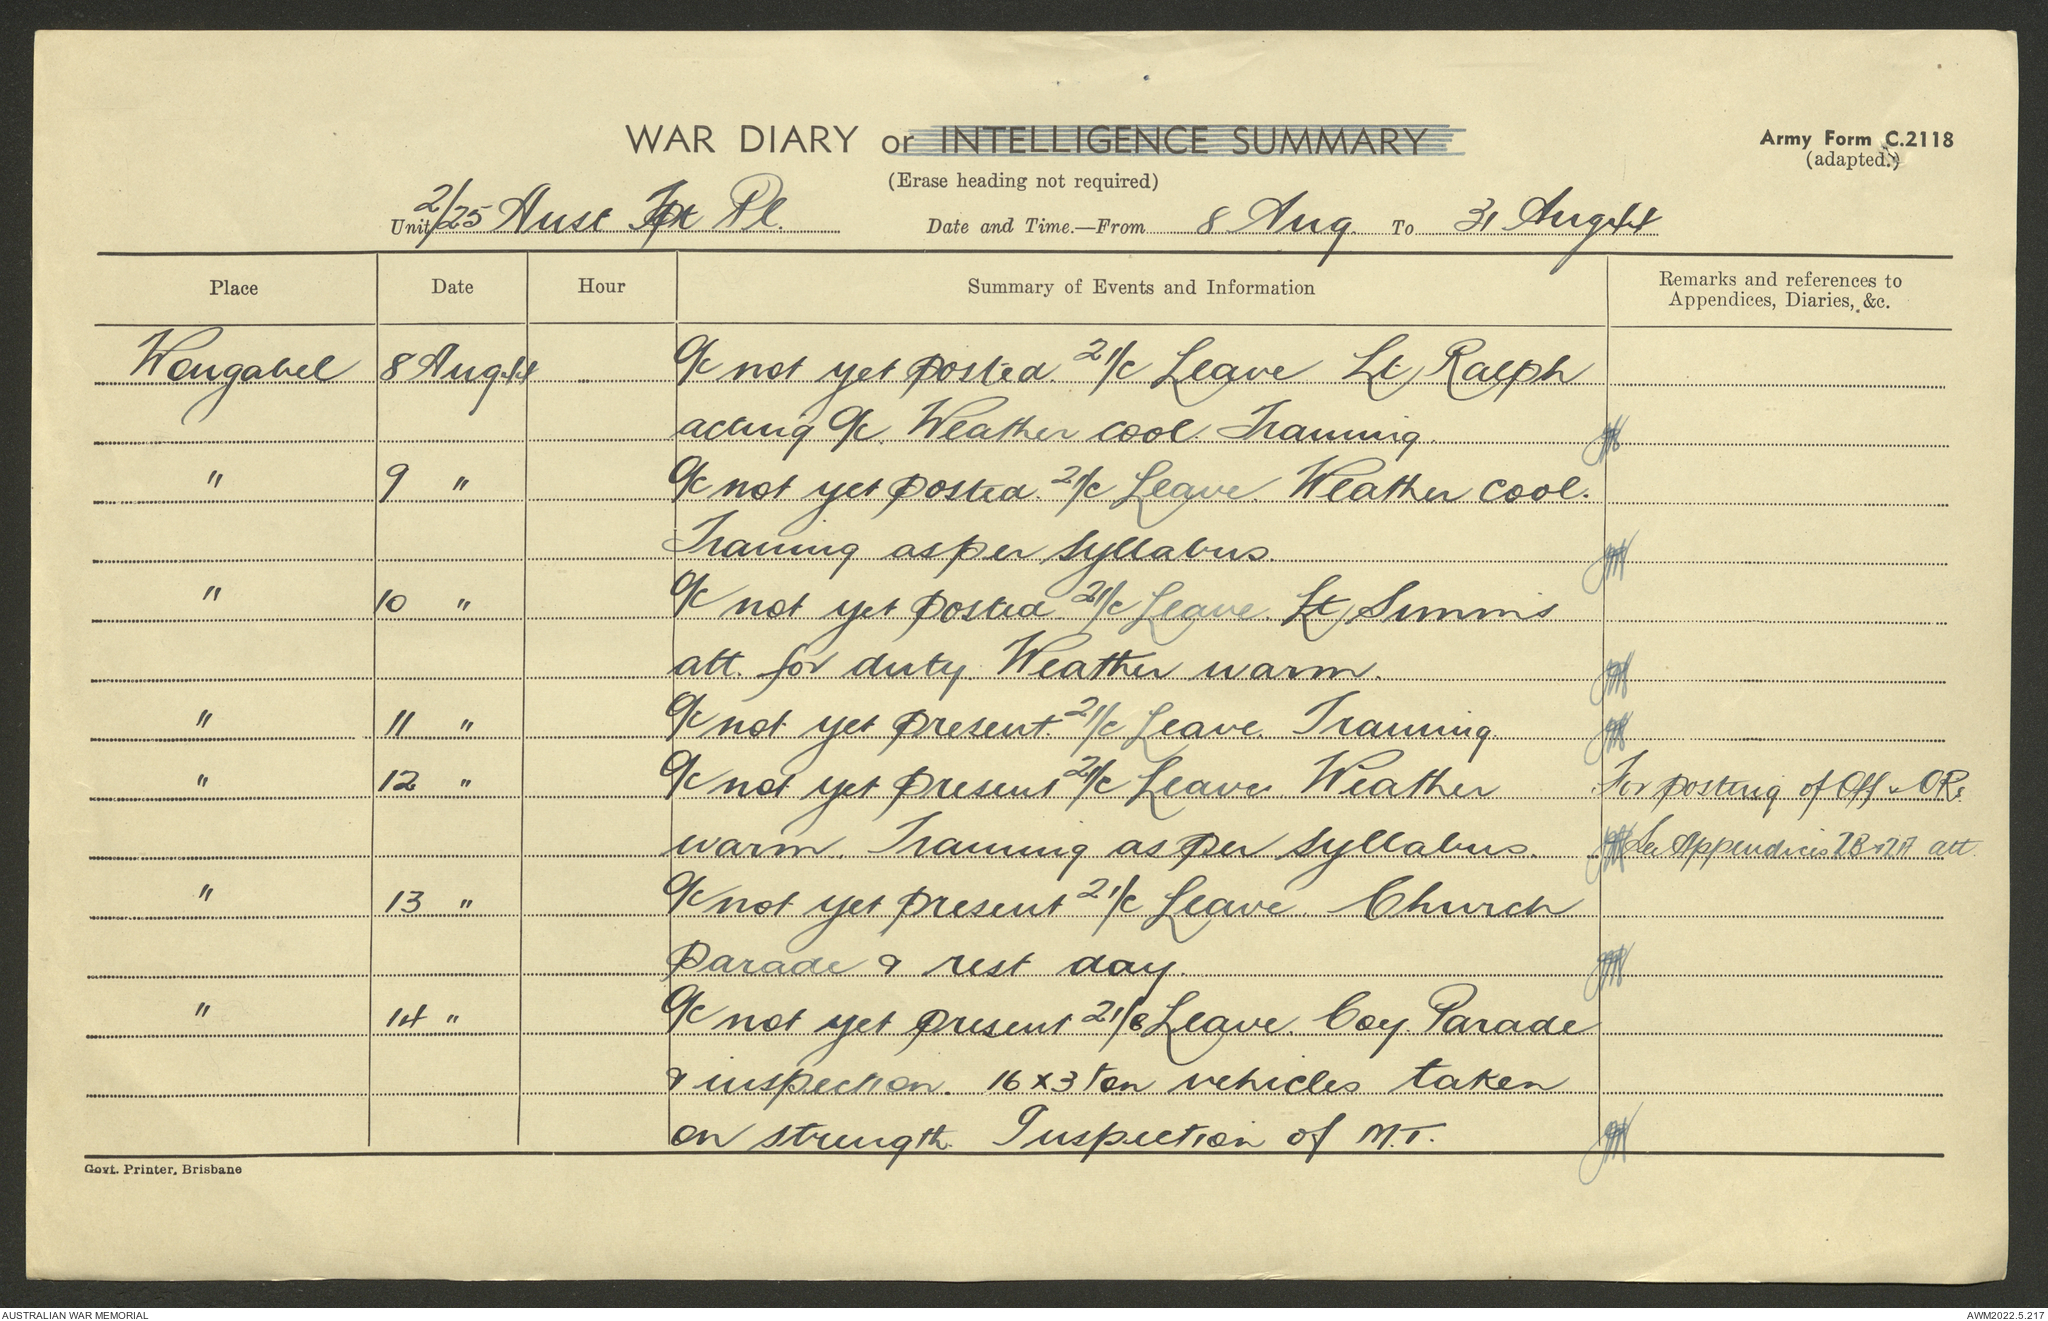 WAR DIARY or INTELLIGENCE SUMMARY
Army Form C.2118
(adapted.)
(Erase heading not required)
Unit 2/25 Aust Tpt Pl. Date and Time.—From 8 Aug. To 31 Aug 44
Place Date Hour Summary of Events and Information Remarks and references to
Appendices, Diaries, &c.
Wongabel 8 Aug 44 O/c not yet posted. 2 I/c Leave Lt Ralph
acting O/c. Weather cool. Training.
" 9 " O/c not yet posted. 2 I/c Leave. Weather cool.
Training as per syllabus.
" 10 " O/c not yet posted. 2 I/c Leave. Lt Simms
att. for duty. Weather warm.
" 11 " O/c not yet present. 2 I/c Leave. Training
" 12 " O/c not yet present 2 I/c Leave. Weather For posting of Off & ORs
warm. Training as per syllabus. See Appendices 2B & 2A att.
" 13 " O/c not yet present 2 I/c Leave. Church
parade & rest day.
" 14 " O/c not yet present 2 I/c Leave. Coy. Parade
& inspection. 16 x 3 ton vehicles taken
on strength. Inspection of M.T.
Govt. Printer, Brisbane
AUSTRALIAN WAR MEMORIAL
AWM2022.5.217